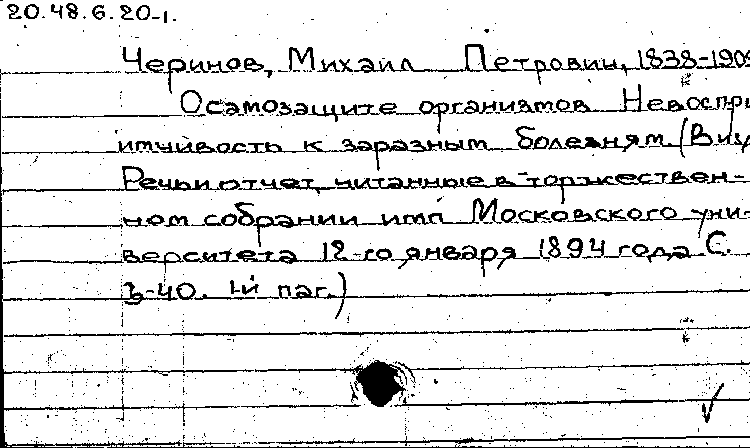 20.48.6.20-1.
Черинов, Михаил Петрович, 1838-1905
О самозащите организмов Невоспри-
имчивость к заразным болезням. (В
Речь и отчет, читанные в торжествен-
ном собрании имп. Московского уни-
верситета 12-го января 1894 года С.
3-40. 1й паг.)